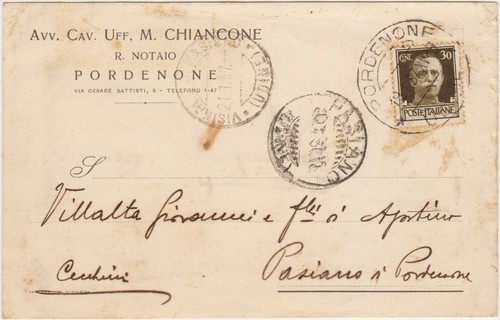 AVV. CAV. UFF. M. CHIANCONE
R. NOTAIO
PORDENONE
VIA CESARE BATTISTI, 9 - TELEFONO 1-47
PORDENONE
CENT. 30
POSTE ITALIANE
PASIANO
S
Villalta Giovanni e f.lli
Cecchini
Pasiano di Pordenone